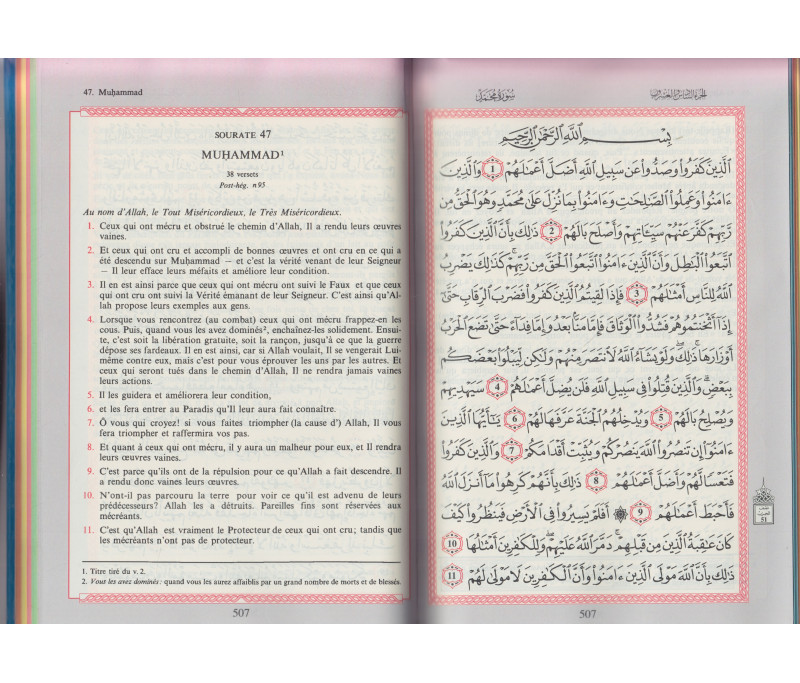 47. Muḥammad
SOURATE 47
MUḤAMMAD¹
38 versets
Post-hég. n 95
Au nom d'Allah, le Tout Miséricordieux, le Très Miséricordieux.
1. Ceux qui ont mécru et obstrué le chemin d'Allah, Il a rendu leurs œuvres
vaines.
2. Et ceux qui ont cru et accompli de bonnes œuvres et ont cru en ce qui a
été descendu sur Muḥammad — et c'est la vérité venant de leur Seigneur
— Il leur efface leurs méfaits et améliore leur condition.
3. Il en est ainsi parce que ceux qui ont mécru ont suivi le Faux et que ceux
qui ont cru ont suivi la Vérité émanant de leur Seigneur. C'est ainsi qu'Al-
lah propose leurs exemples aux gens.
4. Lorsque vous rencontrez (au combat) ceux qui ont mécru frappez-en les
cous. Puis, quand vous les avez dominés², enchaînez-les solidement. Ensui-
te, c'est soit la libération gratuite, soit la rançon, jusqu'à ce que la guerre
dépose ses fardeaux. Il en est ainsi, car si Allah voulait, Il se vengerait Lui-
même contre eux, mais c'est pour vous éprouver les uns par les autres. Et
ceux qui seront tués dans le chemin d'Allah, Il ne rendra jamais vaines
leurs actions.
5. Il les guidera et améliorera leur condition,
6. et les fera entrer au Paradis qu'Il leur aura fait connaître.
7. Ô vous qui croyez! si vous faites triompher (la cause d') Allah, Il vous
fera triompher et raffermira vos pas.
8. Et quant à ceux qui ont mécru, il y aura un malheur pour eux, et Il rendra
leurs œuvres vaines.
9. C'est parce qu'ils ont de la répulsion pour ce qu'Allah a fait descendre. Il
a rendu donc vaines leurs œuvres.
10. N'ont-il pas parcouru la terre pour voir ce qu'il est advenu de leurs
prédécesseurs? Allah les a détruits. Pareilles fins sont réservées aux
mécréants.
11. C'est qu'Allah est vraiment le Protecteur de ceux qui ont cru; tandis que
les mécréants n'ont pas de protecteur.
1. Titre tiré du v. 2.
2. Vous les avez dominés : quand vous les aurez affaiblis par un grand nombre de morts et de blessés.
507
سُورَةُ مُحَمَّدٍ
الجزء السادس والعشرون
بِسْمِ اللَّهِ الرَّحْمَٰنِ الرَّحِيمِ
الَّذِينَ كَفَرُوا وَصَدُّوا عَن سَبِيلِ اللَّهِ أَضَلَّ أَعْمَٰلَهُمْ 1 وَالَّذِينَ
ءَامَنُوا وَعَمِلُوا الصَّٰلِحَٰتِ وَءَامَنُوا بِمَا نُزِّلَ عَلَىٰ مُحَمَّدٍ وَهُوَ الْحَقُّ مِن
رَّبِّهِمْ كَفَّرَ عَنْهُمْ سَيِّـَٔاتِهِمْ وَأَصْلَحَ بَالَهُمْ 2 ذَٰلِكَ بِأَنَّ الَّذِينَ كَفَرُوا
اتَّبَعُوا الْبَٰطِلَ وَأَنَّ الَّذِينَ ءَامَنُوا اتَّبَعُوا الْحَقَّ مِن رَّبِّهِمْ كَذَٰلِكَ يَضْرِبُ
اللَّهُ لِلنَّاسِ أَمْثَٰلَهُمْ 3 فَإِذَا لَقِيتُمُ الَّذِينَ كَفَرُوا فَضَرْبَ الرِّقَابِ حَتَّىٰ
إِذَا أَثْخَنتُمُوهُمْ فَشُدُّوا الْوَثَاقَ فَإِمَّا مَنًّا بَعْدُ وَإِمَّا فِدَاءً حَتَّىٰ تَضَعَ الْحَرْبُ
أَوْزَارَهَا ذَٰلِكَ وَلَوْ يَشَاءُ اللَّهُ لَانتَصَرَ مِنْهُمْ وَلَٰكِن لِّيَبْلُوَا بَعْضَكُم
بِبَعْضٍ وَالَّذِينَ قُتِلُوا فِي سَبِيلِ اللَّهِ فَلَن يُضِلَّ أَعْمَٰلَهُمْ 4 سَيَهْدِيهِمْ
وَيُصْلِحُ بَالَهُمْ 5 وَيُدْخِلُهُمُ الْجَنَّةَ عَرَّفَهَا لَهُمْ 6 يَٰأَيُّهَا الَّذِينَ
ءَامَنُوا إِن تَنصُرُوا اللَّهَ يَنصُرْكُمْ وَيُثَبِّتْ أَقْدَامَكُمْ 7 وَالَّذِينَ كَفَرُوا
فَتَعْسًا لَّهُمْ وَأَضَلَّ أَعْمَٰلَهُمْ 8 ذَٰلِكَ بِأَنَّهُمْ كَرِهُوا مَا أَنزَلَ اللَّهُ
فَأَحْبَطَ أَعْمَٰلَهُمْ 9 ۞ أَفَلَمْ يَسِيرُوا فِي الْأَرْضِ فَيَنظُرُوا كَيْفَ
كَانَ عَٰقِبَةُ الَّذِينَ مِن قَبْلِهِمْ دَمَّرَ اللَّهُ عَلَيْهِمْ وَلِلْكَٰفِرِينَ أَمْثَٰلُهَا 10
ذَٰلِكَ بِأَنَّ اللَّهَ مَوْلَى الَّذِينَ ءَامَنُوا وَأَنَّ الْكَٰفِرِينَ لَا مَوْلَىٰ لَهُمْ 11
51
507